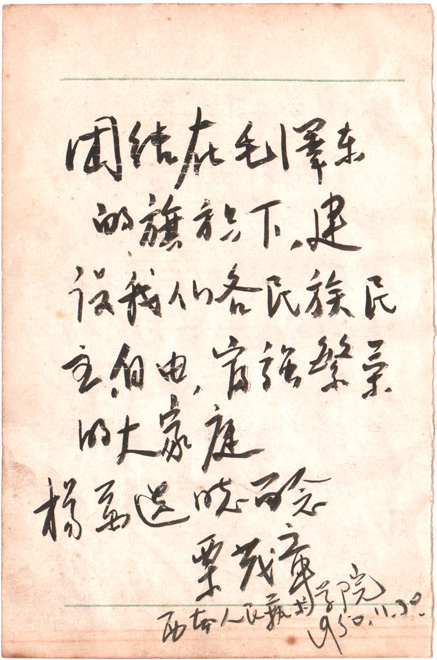 团结在毛泽东
的旗帜下,建
设我们各民族民
主,自由,富强繁荣
的大家庭
杨万选 同志留念
栗茂章
西安人民艺术学院
1950.11.30.